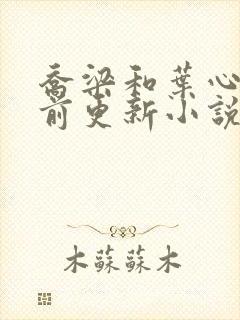 喬梁和葉心
前更新小說
木蘇蘇木